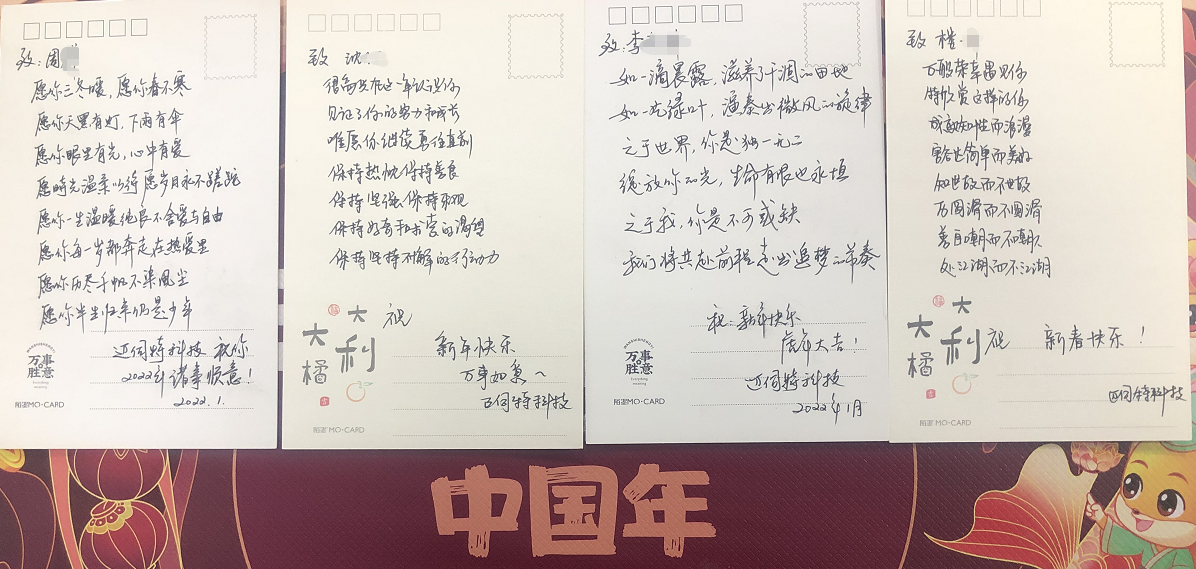 致:周
愿你三冬暖，愿你春不寒
愿你天黑有灯，下雨有伞
愿你眼里有光，心中有爱
愿时光温柔以待 愿岁月永不蹉跎
愿你一生温暖纯良不舍爱与自由
愿你每一岁都奔走在热爱里
愿你历尽千帆不染风尘
愿你半生归来仍是少年
迈伺特科技 祝你
2022年诸事顺意!
2022.1.
万事胜意
Everything
陌墨MO·CARD
致 沈
很高兴在这一年认识你
见证了你的努力和成长
唯愿你继续勇往直前
保持热忱保持善良
保持坚强、保持乐观
保持好奇和求索的渴望
保持坚持不懈的行动力
大橘
大利
祝
新年快乐
万事如意~
迈伺特科技
陌墨MO·CARD
致:李
如一滴晨露，滋养了干涸的田地
如一片绿叶，演奏出微风的旋律
之于世界，你是独一无二
绽放你的光，生命有限也永恒
之于我，你是不可或缺
我们将共赴前程走出追梦的节奏
祝:新年快乐
虎年大吉!
迈伺特科技
2022年1月
万事胜意
Everything
陌墨MO·CARD
致 楷
万般荣幸遇见你
特欣赏这样的你
成熟知性而浪漫
豁达简单而美好
知世故而不世故
历圆滑而不圆滑
善自嘲而不嘲人
处江湖而不江湖
大橘
大利
祝 新春快乐!
迈伺特科技
陌墨MO·CARD
中国年